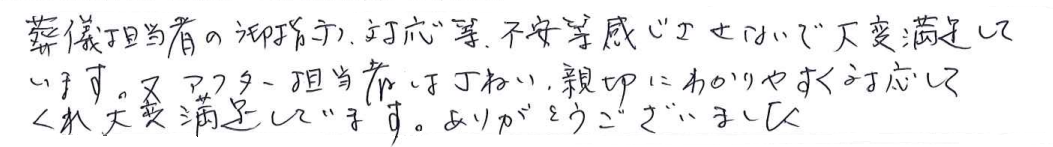 葬儀担当者の御指示、対応等、不安等感じさせないで大変満足して
います。又アフター担当者は丁ねい、親切にわかりやすく対応して
くれ大変満足しています。ありがとうございました